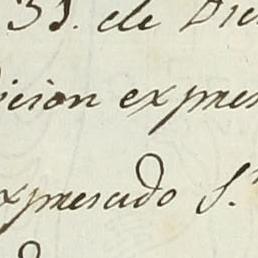 31. de Dic
icion expres
xpresado S.r